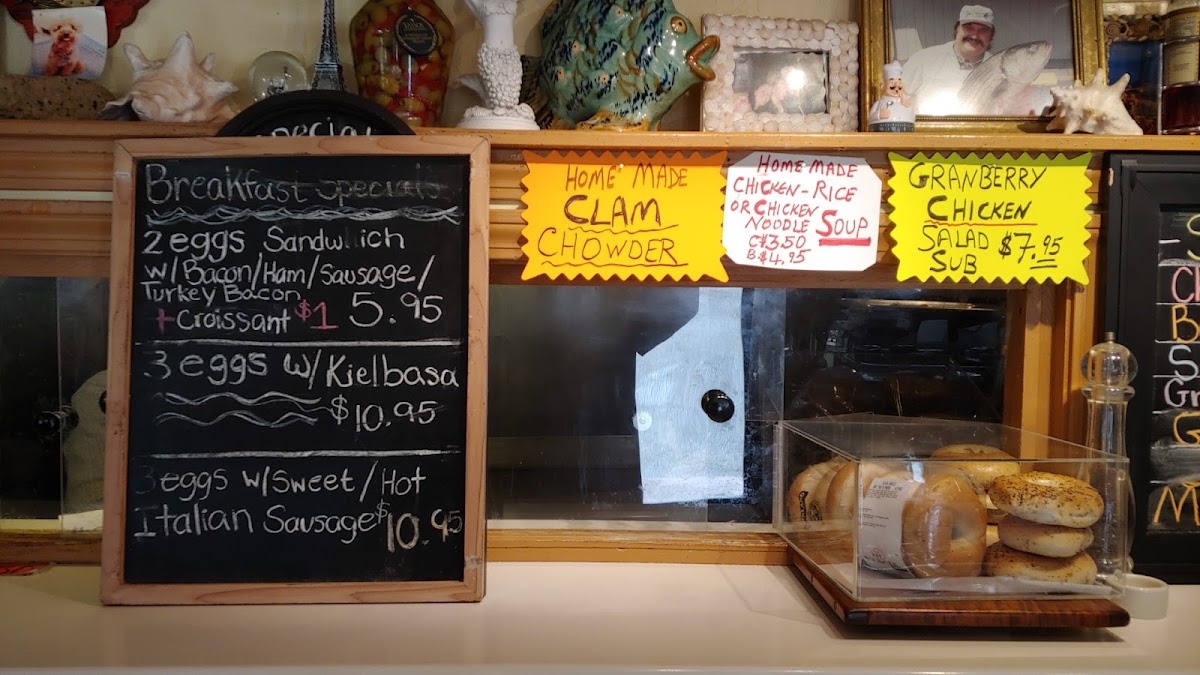 Special
Breakfast specials
2 eggs Sandwich
w/Bacon/Ham/Sausage/
Turkey Bacon
+Croissant $1 5.95
3 eggs w/Kielbasa
$10.95
3 eggs w/Sweet/Hot
Italian Sausage $10.95
HOME MADE
CLAM
CHOWDER
HOME MADE
CHICKEN-RICE
OR CHICKEN
NOODLE SOUP
C $3.50
B $4.95
GRANBERRY
CHICKEN
SALAD $7.95
SUB